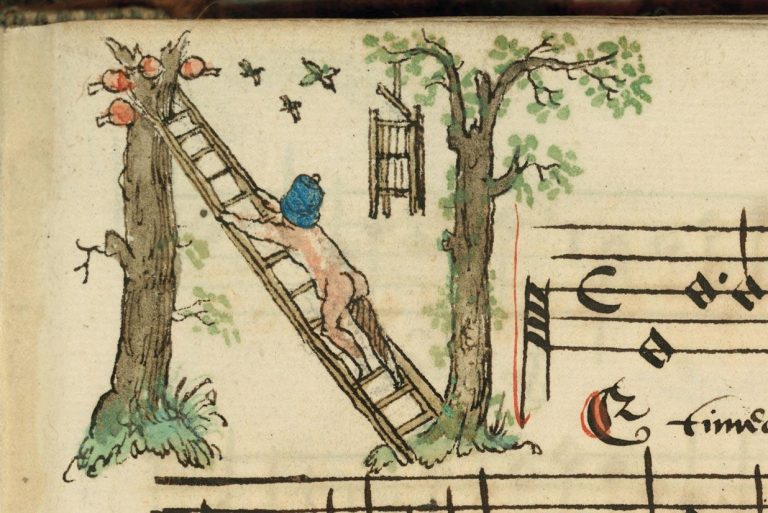 N
Et time